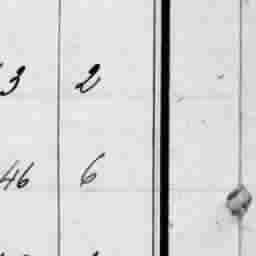 3 2
46 6